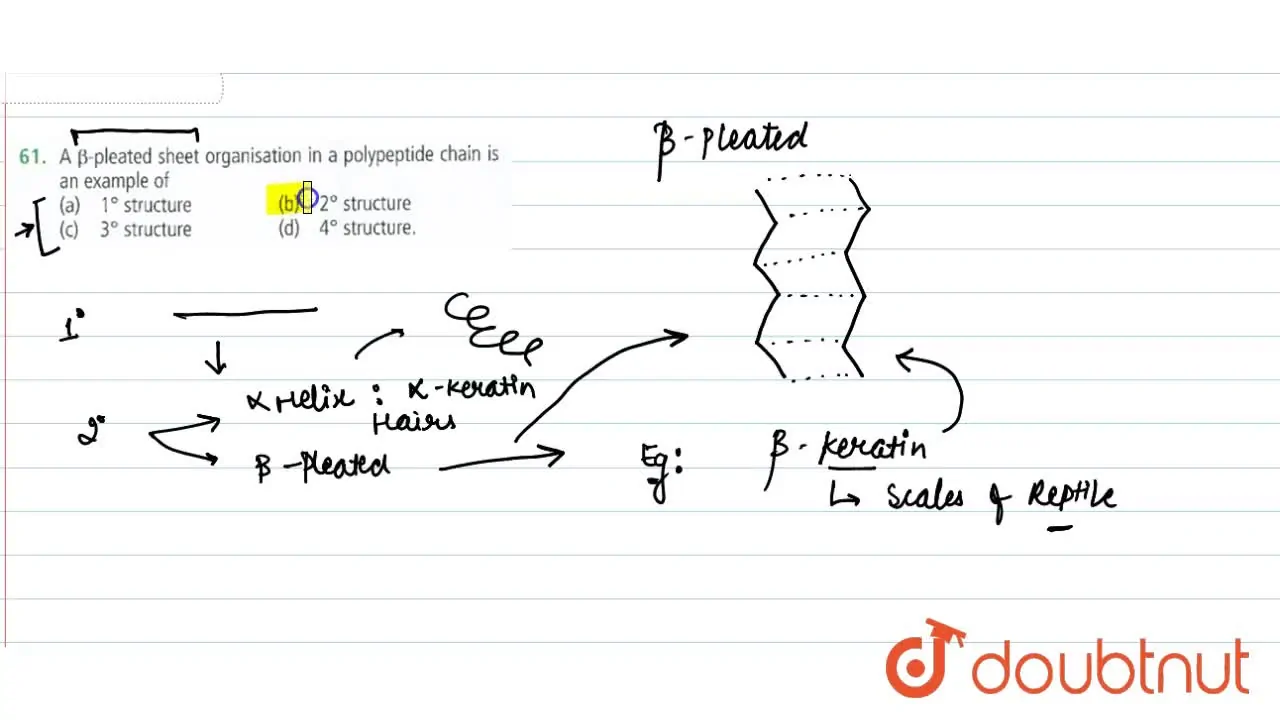 61. A β-pleated sheet organisation in a polypeptide chain is
an example of
(a) 1° structure (b) 2° structure
(c) 3° structure (d) 4° structure.
β-pleated
1°
α Helix : α-keratin
Hairs
2°
β-pleated
Eg:
β-keratin
↳ scales of Reptile
doubtnut